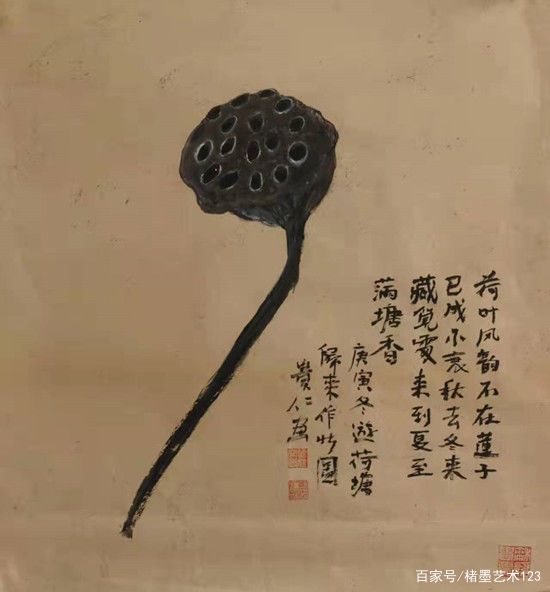 荷叶风韵不在蓮子
已成不衰秋去冬来
藏来到夏至
满塘香
庚寅冬遊荷塘
歸来作此圖
貴仁畫
百家号/楮墨艺术123